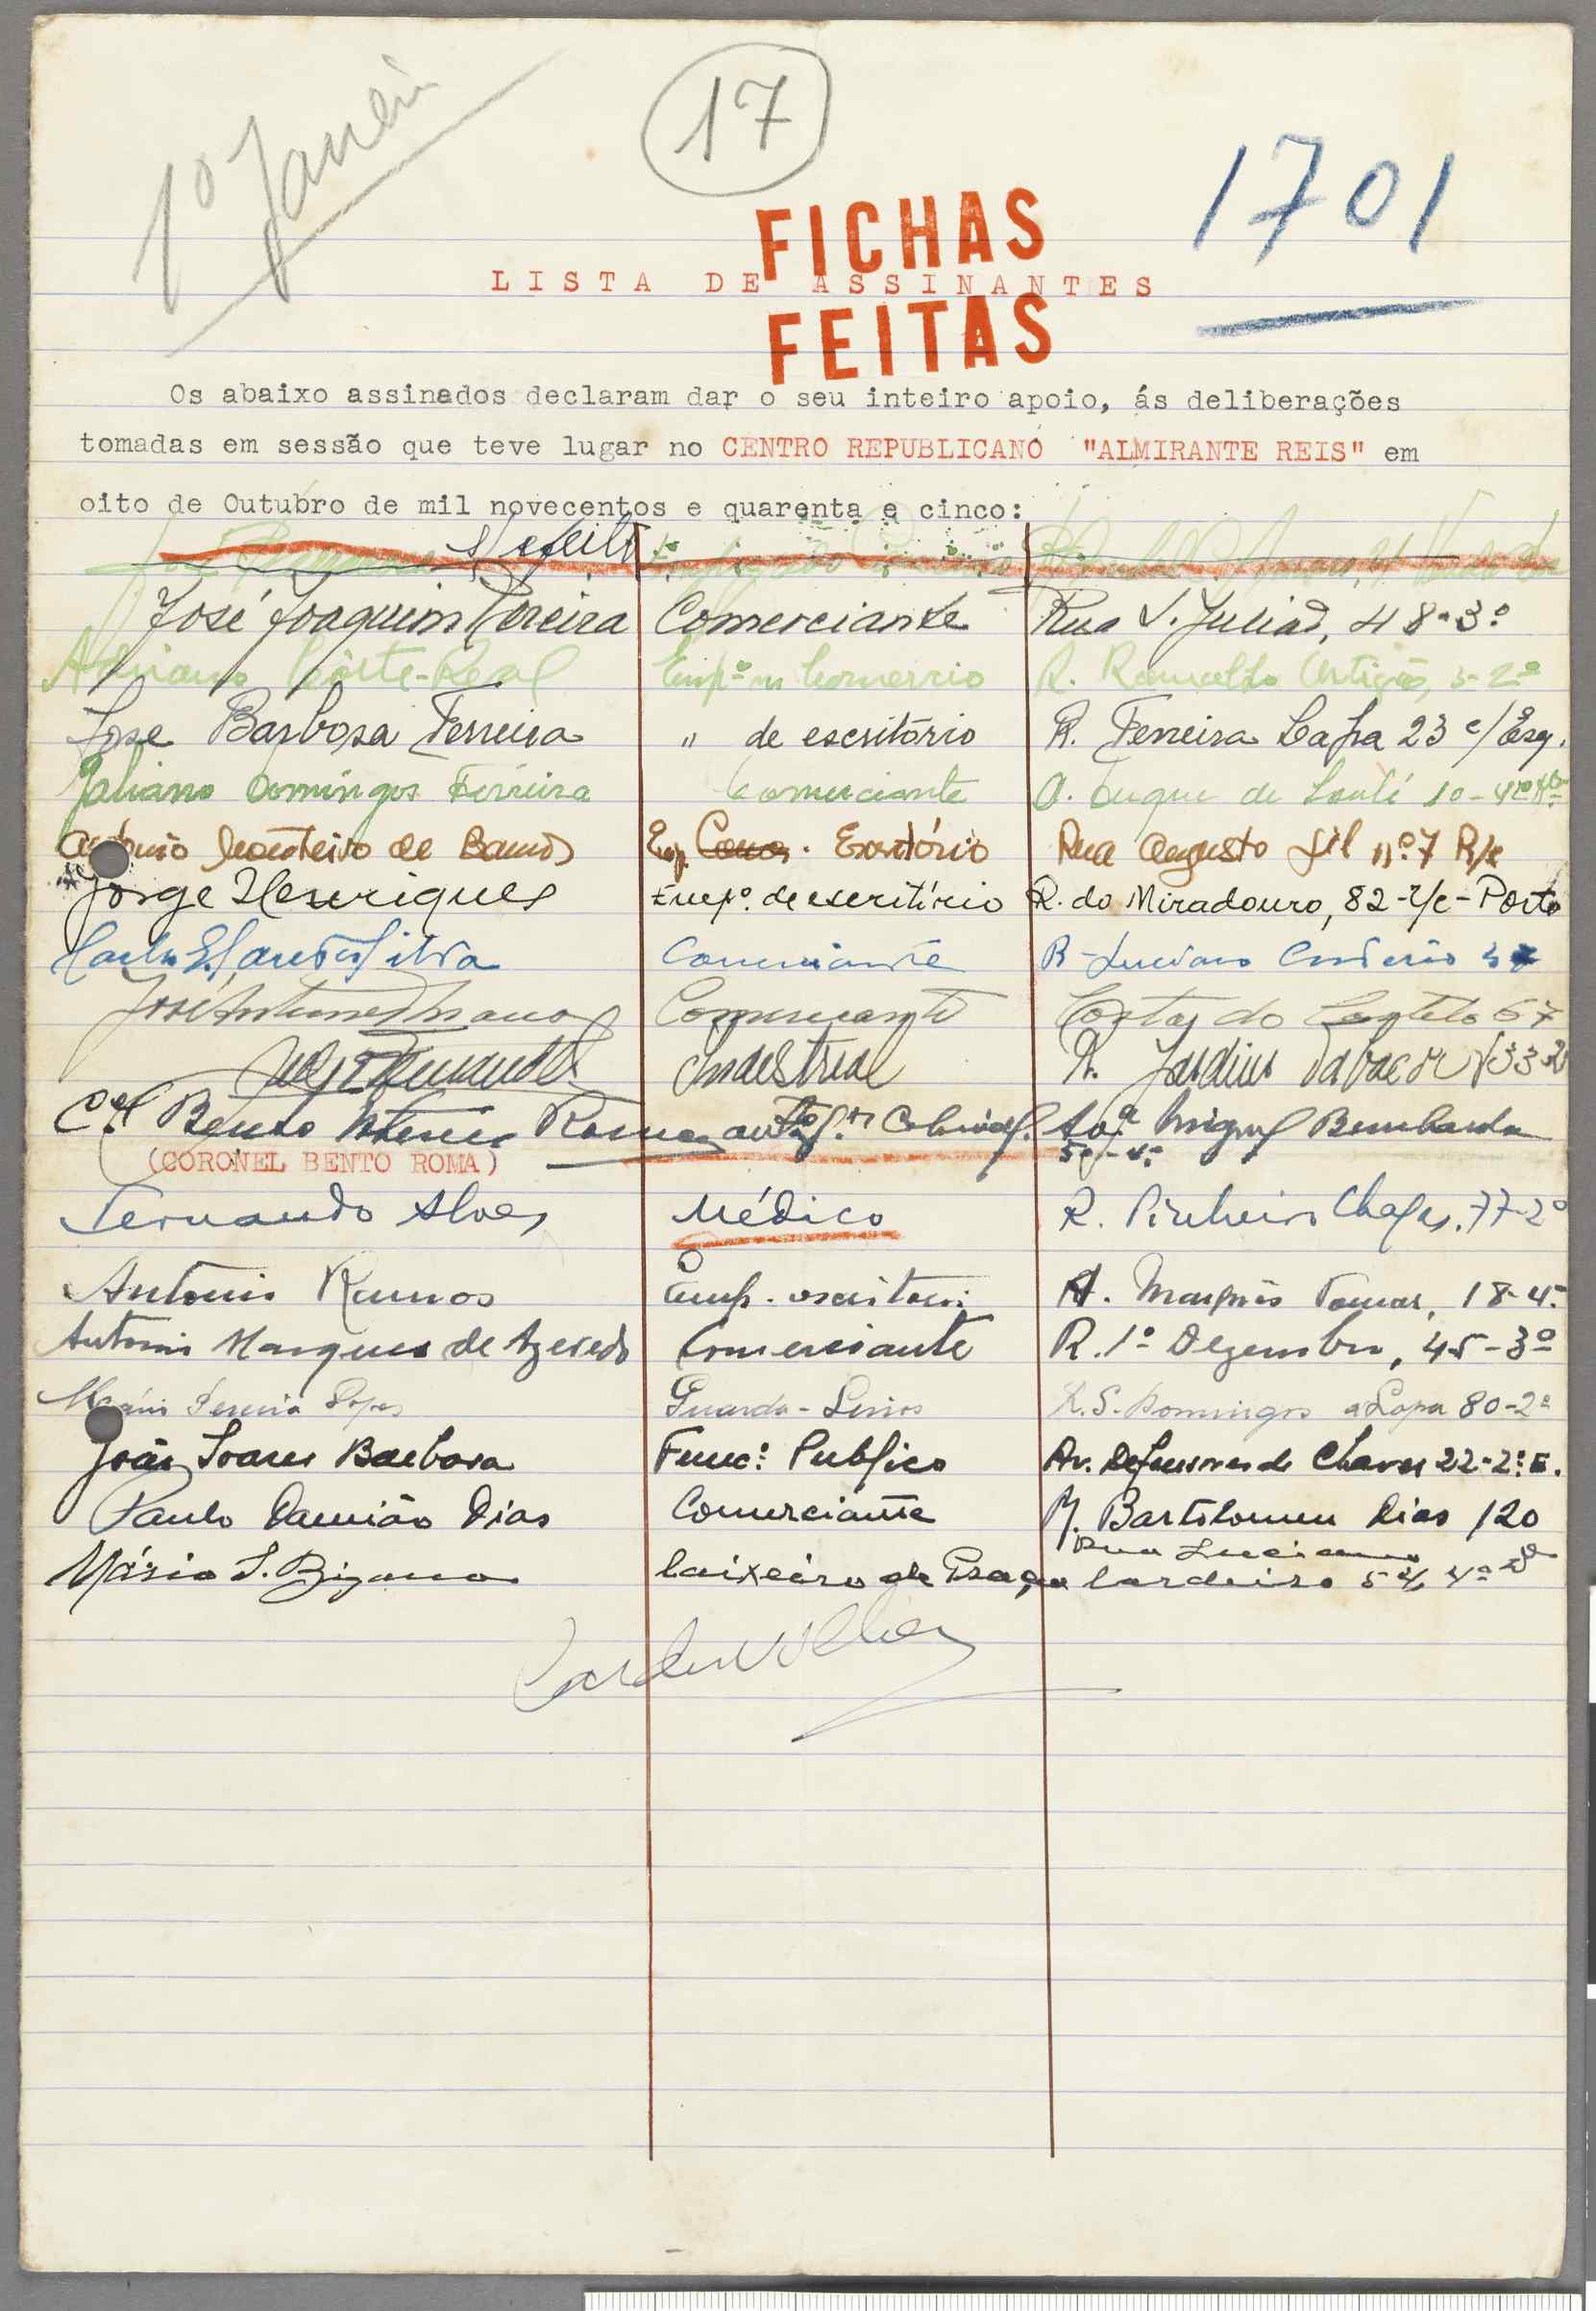 1º Janeiro
17
1701
FICHAS
LISTA DE ASSINANTES
FEITAS
Os abaixo assinados declaram dar o seu inteiro apoio, ás deliberações
tomadas em sessão que teve lugar no CENTRO REPUBLICANO "ALMIRANTE REIS" em
oito de Outubro de mil novecentos e quarenta e cinco:
s/efeito
José Joaquim Pereira Comerciante Rua S. Julião, 48-3º
Adriano Côrte-Real Empº no Comercio R. Ramalho Ortigão, 5-2º
Jose Barbosa Ferreira " de escritório R. Ferreira Lapa 23 c/Esq.
Juliano Domingos Ferreira Comerciante Duque de Loulé 10-4º
António Monteiro de Barros Emp. Escritório Rua Augusto Gil nº 7 R/c
Jorge Henriques Empº. de escritório R. do Miradouro, 82-r/c-Porto
Santos Silva Comerciante R Luciano Cordeiro
José Antunes Comerciante Costa do Castelo 67
Fernandes Industrial R. Jardim Tabaco 33
Cel Bento Roma Colonial Avª Miguel Bombarda
(CORONEL BENTO ROMA)
Fernando Alves Médico R. Pinheiro Chagas, 77-2º
Antonio Ramos Emp. escritorio A. Marquês Tomar, 18-4º
Antonio Marques de Azevedo Comerciante R. 1º Dezembro, 45-3º
Pereira Lopes Guarda-Livros R. S. Domingos a Lapa 80-2º
João Soares Barbosa Funcº Publico Av. Defensores de Chaves 22-2º E.
Paulo Damião Dias Comerciante R. Bartolomeu Dias 120
Rua Luciano
Mário S. Caixeiro de Praça Cordeiro 4º